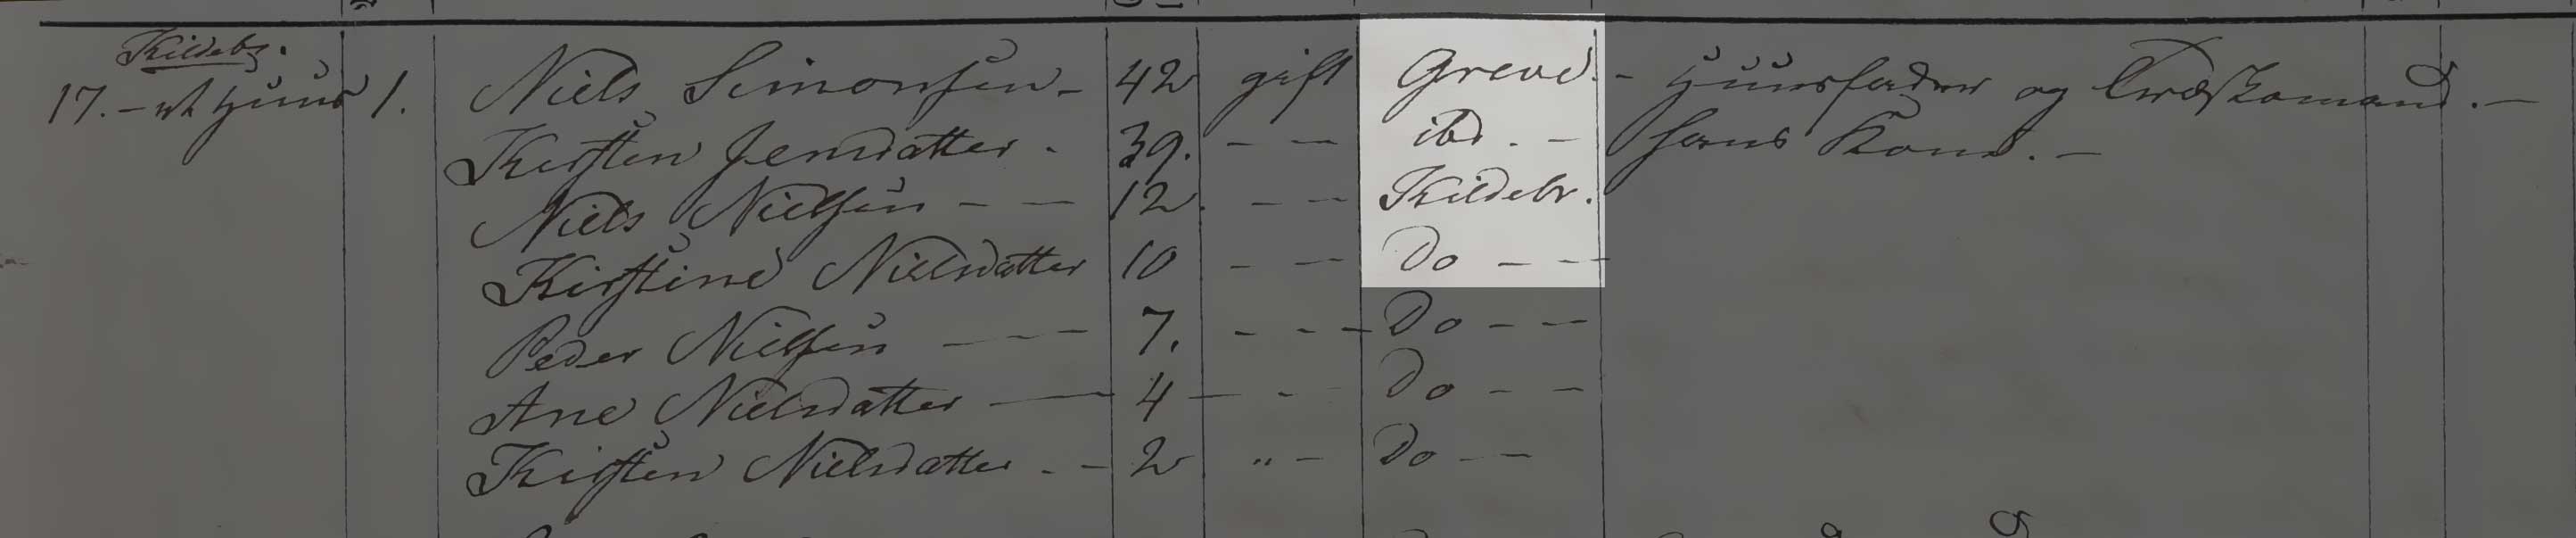 Kildebr.
17. – et Huus 1. Niels Simonsen – 42 gift Greve. – Huusfader og Træskomand. –
Kirsten Jensdatter. 39. – – ibd. – hans Kone. –
Niels Nielsen – – 12. – – Kildebr.
Kirstine Nielsdatter 10 – – Do – –
Peder Nielsen – – 7. – – – Do – –
Ane Nielsdatter – 4 – – Do – –
Kirsten Nielsdatter – – 2 " – Do – –